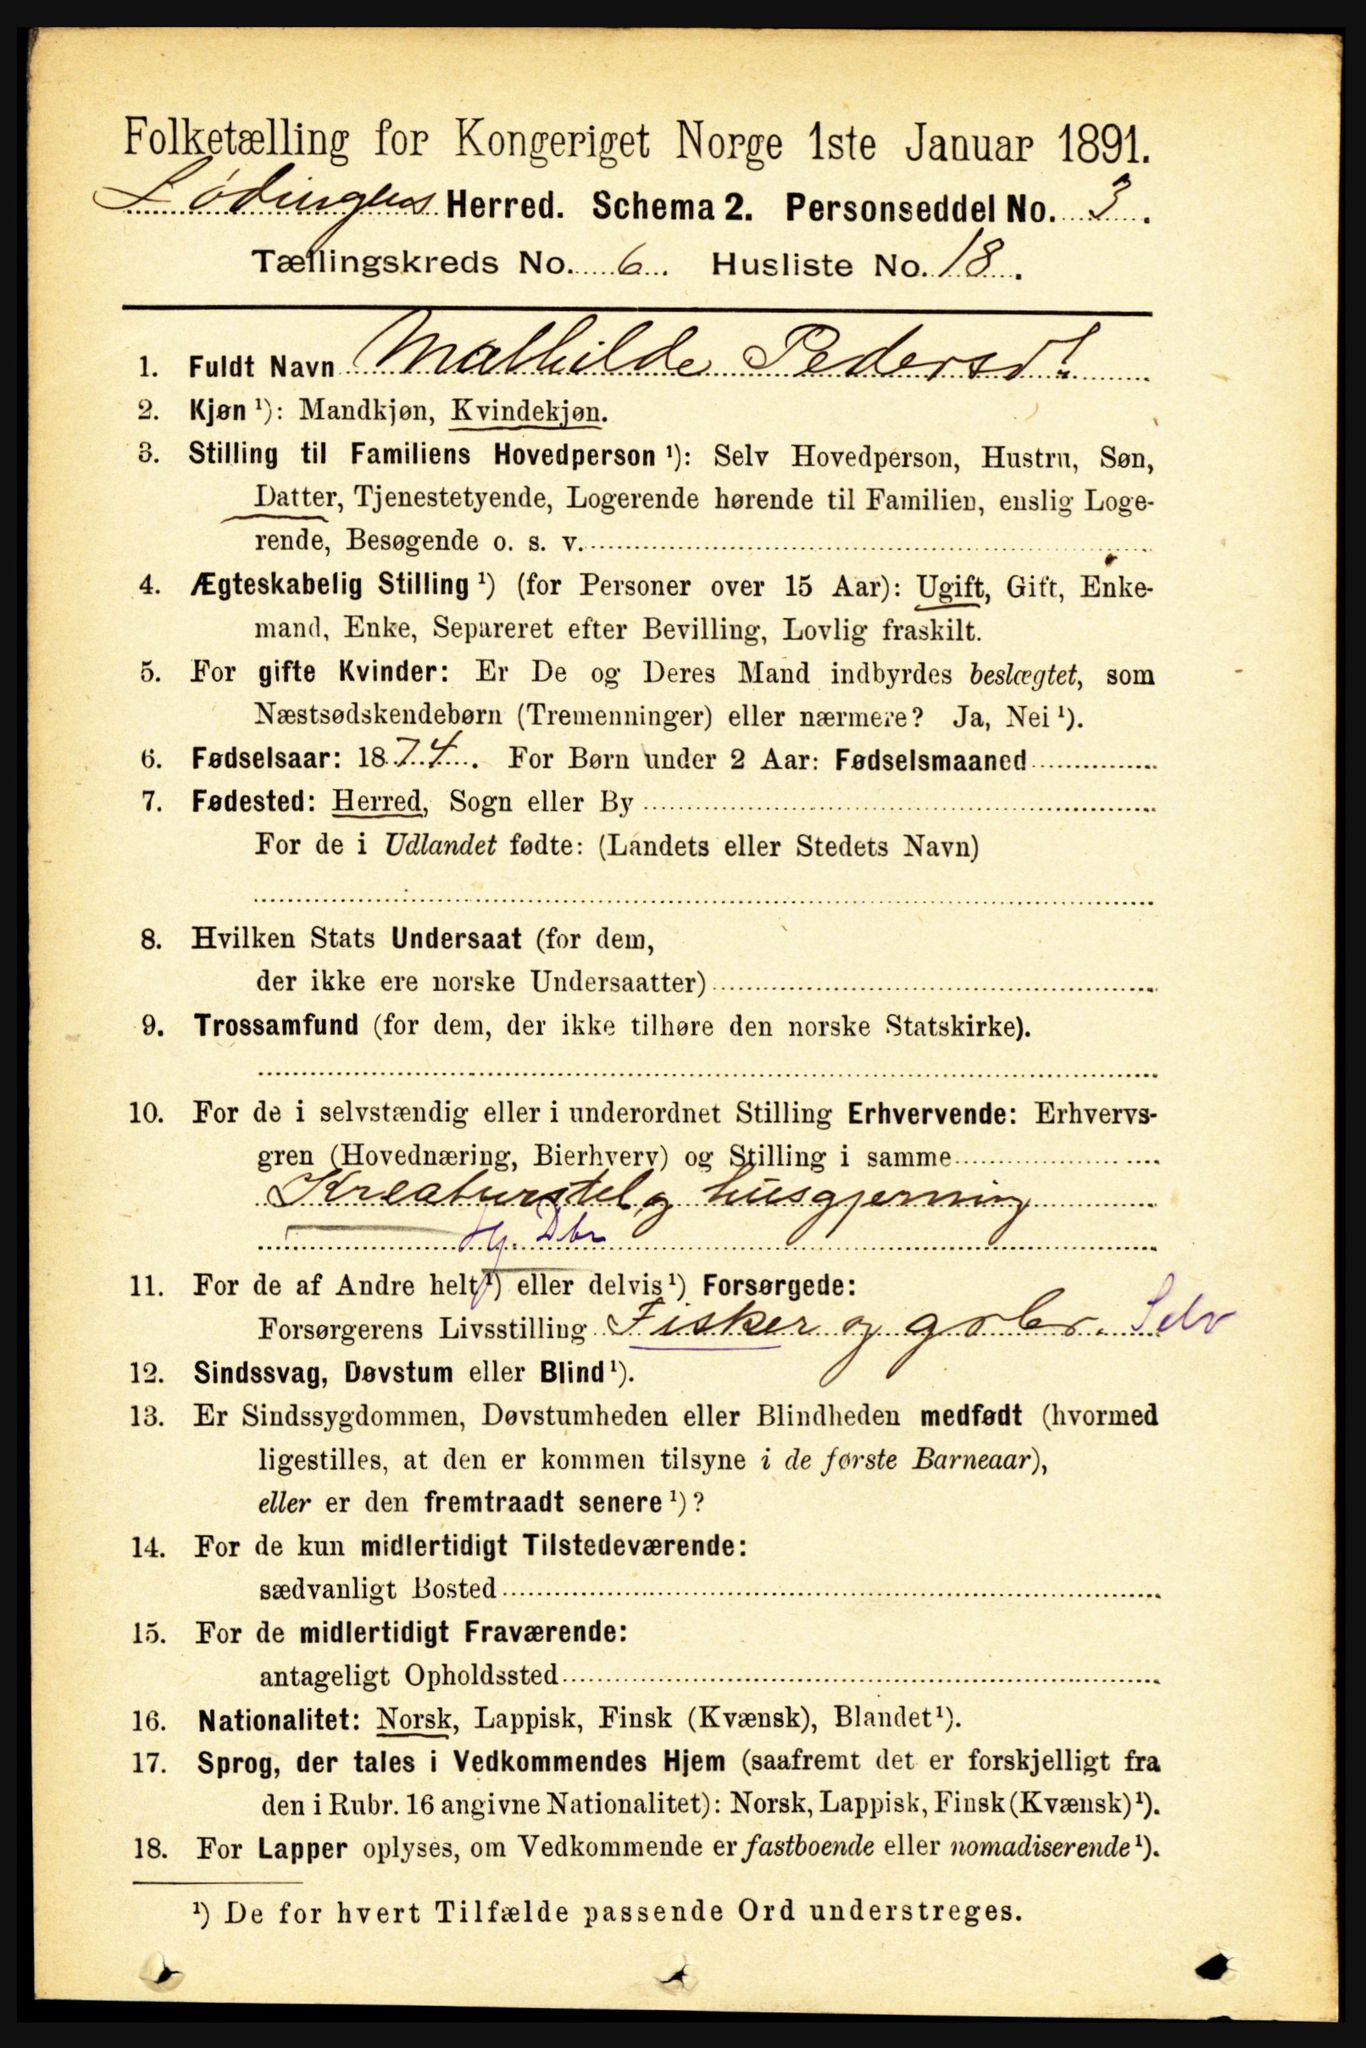 Folketælling for Kongeriget Norge 1ste Januar 1891.
Lødingens Herred. Schema 2. Personseddel No. 3.
Tællingskreds No. 6. Husliste No. 18.
1. Fuldt Navn Mathilde Pedersd!
2. Kjøn ¹): Mandkjøn, Kvindekjøn.
3. Stilling til Familiens Hovedperson ¹): Selv Hovedperson, Hustru, Søn,
Datter, Tjenestetyende, Logerende hørende til Familien, enslig Loge-
rende, Besøgende o. s. v.
4. Ægteskabelig Stilling ¹) (for Personer over 15 Aar): Ugift, Gift, Enke-
mand, Enke, Separeret efter Bevilling, Lovlig fraskilt.
5. For gifte Kvinder: Er De og Deres Mand indbyrdes beslægtet, som
Næstsødskendebørn (Tremenninger) eller nærmere? Ja, Nei ¹).
6. Fødselsaar: 1874. For Børn under 2 Aar: Fødselsmaaned
7. Fødested: Herred, Sogn eller By
For de i Udlandet fødte: (Landets eller Stedets Navn)
8. Hvilken Stats Undersaat (for dem,
der ikke ere norske Undersaatter)
9. Trossamfund (for dem, der ikke tilhøre den norske Statskirke).
10. For de i selvstændig eller i underordnet Stilling Erhvervende: Erhvervs-
gren (Hovednæring, Bierhverv) og Stilling i samme
Kreaturstel og husgjerning
Hj. Dbr
11. For de af Andre helt ¹) eller delvis ¹) Forsørgede:
Forsørgerens Livsstilling Fisker og grbr. Selv
12. Sindssvag, Døvstum eller Blind ¹).
13. Er Sindssygdommen, Døvstumheden eller Blindheden medfødt (hvormed
ligestilles, at den er kommen tilsyne i de første Barneaar),
eller er den fremtraadt senere ¹)?
14. For de kun midlertidigt Tilstedeværende:
sædvanligt Bosted
15. For de midlertidigt Fraværende:
antageligt Opholdssted
16. Nationalitet: Norsk, Lappisk, Finsk (Kvænsk), Blandet ¹).
17. Sprog, der tales i Vedkommendes Hjem (saafremt det er forskjelligt fra
den i Rubr. 16 angivne Nationalitet): Norsk, Lappisk, Finsk (Kvænsk) ¹).
18. For Lapper oplyses, om Vedkommende er fastboende eller nomadiserende ¹).
¹) De for hvert Tilfælde passende Ord understreges.